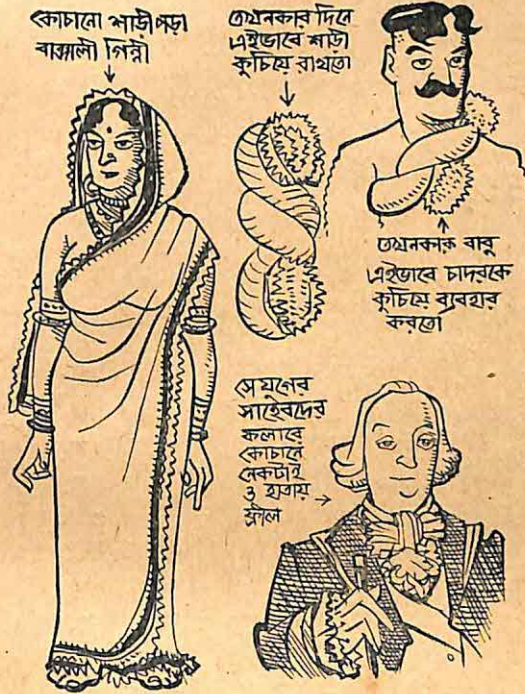 কোচানো শাড়ী পড়া
বাঙ্গালী গিন্নী
তখনকার দিনে
এইভাবে শাড়ী
কুচিয়ে রাখতো
তখনকার বাবু
এইভাবে চাদরকে
কুচিয়ে ব্যবহার
করতো
সে যুগের
সাহেবদের
কলারে
কোচানো
নেকটাই
ও হাতায়
ফ্রীল